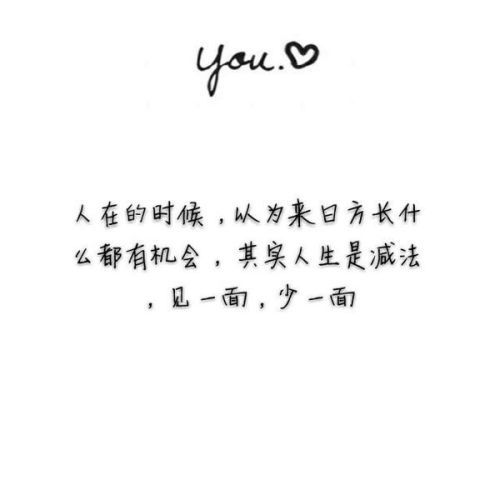 you.♡
人在的时候，以为来日方长什
么都有机会，其实人生是减法
，见一面，少一面